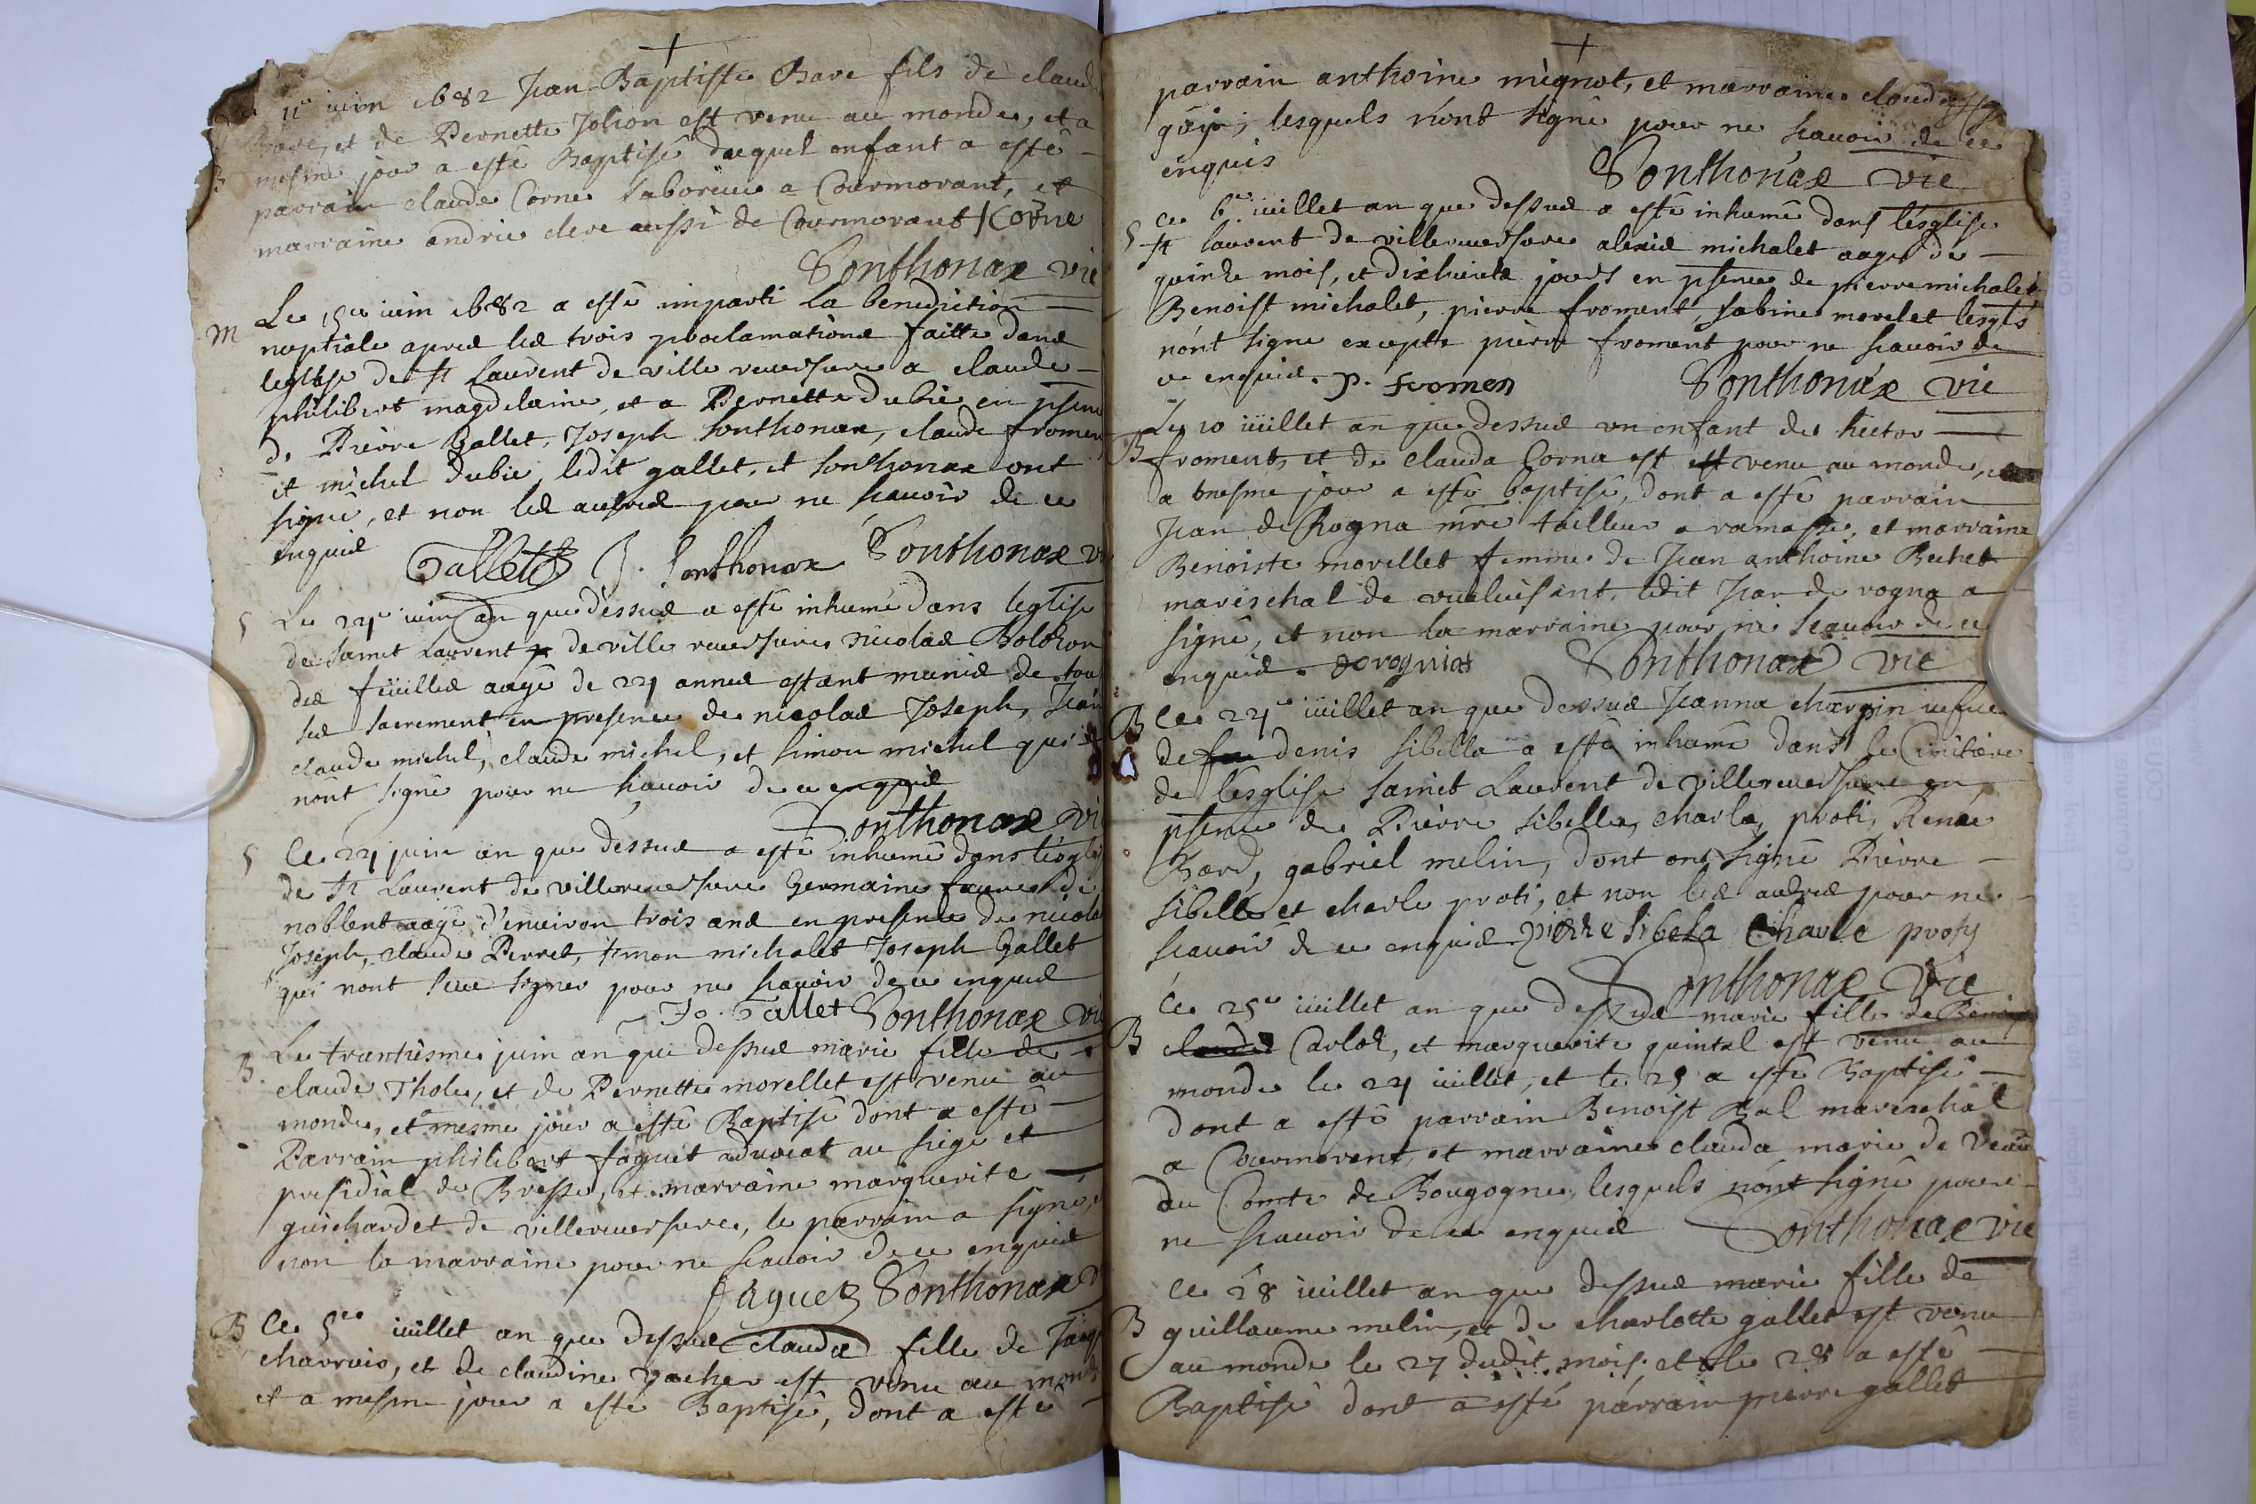 11e iuin 1682 Jean Baptiste Bave fils de claud
Bave, et de Pernette Johon est venu au monde, et a
mesme jour a esté Baptisé duquel enfant a esté
B
parrain claude Corne laboreur a Courmorant, et
marraine andrie clere aussi de Courmorant Corne
Sonthonax vic
Le iuin 1682 a esté imparti la benediction
M
nuptiale apred led trois proclamationd faitte dand
leglise de st Laurent de ville reuersure a claude
philibert magdelaine, et a Pernette Dubie en psence
de Pierre Gallet, Joseph Sonthonax, claude fromen
et michel dubie, ledit gallet, et Sonthonax ont
signé, et non led autred pour ne scauoir de ce
enquid
Gallet J. Sonthonax Sonthonax
Le 24e iuin an que dessud a esté inhumé dans leglise
S
de Saint Laurent de ville reuersure nicolad Bolozon
ded feuilled aagé de 24 anned estant munid de tou
sed sacrement en presence de nicolad Joseph, Jean
claude michel, claude michel, et simon michel qui
nont signé pour ne scauoir de ce enquid
Sonthonax vi
Ce 24 juin an que dessud a esté inhumé dans lésglis
S
de st Laurent de villereuersure Germaine faure de
noblent aagé d'enuiron trois and en presence de nicola
Joseph, claude Perret, simon michalet Joseph Gallet
qui nont sceu signer pour ne scauoir de ce enquid
Jo. Gallet Sonthonax vi
Le trantiesme juin an que dessud marie fille de
B
claude Thole, et de Pernette morellet est venu au
monde, et mesme jour a esté Baptisé dont a esté
Parrain philibert faguet aduocat au siege et
presidial de Bresse, et marraine marguerite
guichardet de villereuersure, le parrain a signé,
non la marraine pour ne scauoir de ce enquid
faguet Sonthonax
B Ce 5e iuillet an que dessud clauda fille de Jaq
charruis, et de claudine vacher est venu au mond
et a mesme jour a esté Baptisé, dont a esté
parrain anthoine mignot, et marraine claud
lesquels nont signé pour ne scauoir de ce
enquis
Sonthonax vic
Ce 6e iuillet an que dessud a esté inhumé dans lésglise
S
st laurent de villereuersure alexid michalet aagé de
quinze mois, et dixhuict jours en psence de pierre michalet
Benoist michalet, pierre froment, sabine morelet lesqls
nont signé excepte pierre froment pour ne scauoir de
ce enquid. p. fromen Sonthonax vic
Le 10 iuillet an que dessud vn enfant de hector
B
froment, et de clauda Corna est venu au monde,
a mesme jour a esté baptisé, dont a esté parrain
Jean de Rogna mre tailleur a ramasse, et marraine
Benoiste morellet femme de Jean anthoine Bechet
mareschal de ledit Jean de rogna a
signé, et non la marraine pour ne scauoir de ce
enquid. derognia Sonthonax vic
B Ce 24e iuillet an que dessud Jeanna charpin uefue
de feu denis sibella a esté inhumé dans le Cimitiere
de lésglise sainct Laurent de villereuersure en
psence de Pierre sibelle, charle, proti, Renee
Bard, gabriel melin, dont ont signé Pierre
sibelle et charle proti, et non led autred pour ne
scauoir de ce enquid pierre sibela Charle proty
Sonthonax vic
Ce 25e iuillet an que dessud marie fille de Benoi
B
claude Carloz, et marguerite quintal est venu au
monde le 24 iuillet, et le 25 a esté Baptisé
dont a esté parrain Benoist Bal mareschal
a Courmorent, et marraine clauda marie de
du Comte de Bougogne, lesquels nont signé pour
ne scauoir de ce enquid Sonthonax vic
Ce 28 iuillet an que dessud marie fille de
B guillaume melin, et de charlotte gallet est venu
au monde le 27 dudit mois. et le 28 a esté
Baptisé dont a esté parrain pierre gallet